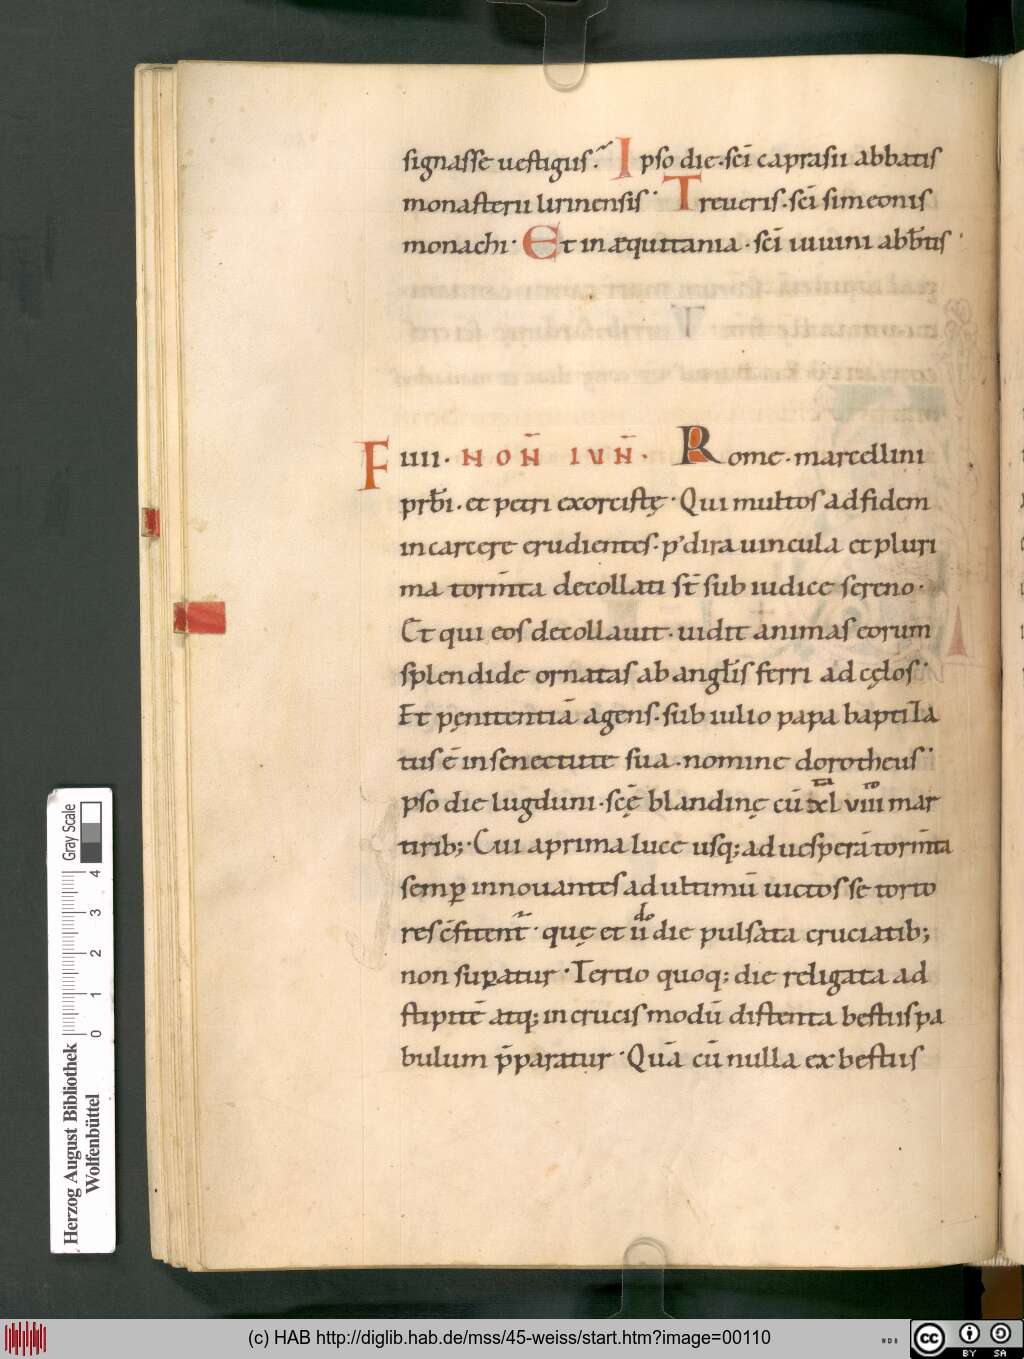 signasse uestigiis. Ipso die. sc̄i caprasii abbatis
monasterii lirinensis. Treueris. sc̄i simeonis
monachi. Et in æquitania. sc̄i iuuini abb̄tis.
T
F IIII. NOÑ IVÑ. Rome. marcellini
prb̄i. et petri exorcistę. Qui multos ad fidem
in carcere erudientes. p' dira uincula et pluri
ma torm̄ta decollati st̄ sub iudice sereno.
Et qui eos decollauit. uidit animas eorum
splendide ornatas ab angl̄is ferri ad cęlos.
Et pęnitentiā agens. sub iulio papa baptiza
tus ē in senectute sua. nomine dorotheus.
pso die lugduni. sc̄ę blandinę cū xl viii mar
tirib; Cui a prima luce usq; ad uesperā torm̄ta
semꝑ innouantes ad ultimū uictos se torto
res c̄fitent̃. quę et ii do die pulsata cruciatib;
non suꝑatur. Tertio quoq; die religata ad
stipitē atq; in crucis modū distenta bestiis pa
bulum p̄paratur. Quā cū nulla ex bestiis
Herzog August Bibliothek
Wolfenbüttel
Gray Scale
0 1 2 3 4
(c) HAB http://diglib.hab.de/mss/45-weiss/start.htm?image=00110
WDB
cc BY SA